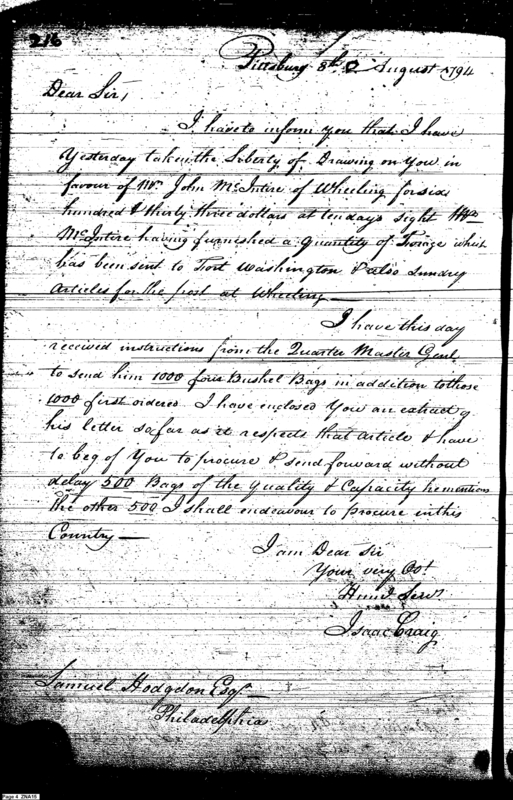 216
Pittsburg 8th August 1794
Dear Sir,
I have to inform you that I have
Yesterday taken the Liberty of Drawing on You in
favour of Mr John McIntire of Wheeling for six
hundred & thirty three dollars at ten days sight Mr
McIntire having furnished a quantity of Forage which
has been sent to Fort Washington & also Sundry
Articles for the post at Wheeling —
I have this day
received instructions from the Quarter Master Genl
to send him 1000 four Bushel Bags in addition to those
1000 first ordered. I have enclosed You an extract of
his letter so far as it respects that Article & have
to beg of You to procure & send forward without
delay 500 Bags of the Quality & Capacity he mentions
the other 500 I shall endeavour to procure in this
Country —
I am Dear Sir
Your very Obt
Humb Servt
Isaac Craig
Samuel Hodgdon Esqr
Philadelphia
Page 4 ZNA16